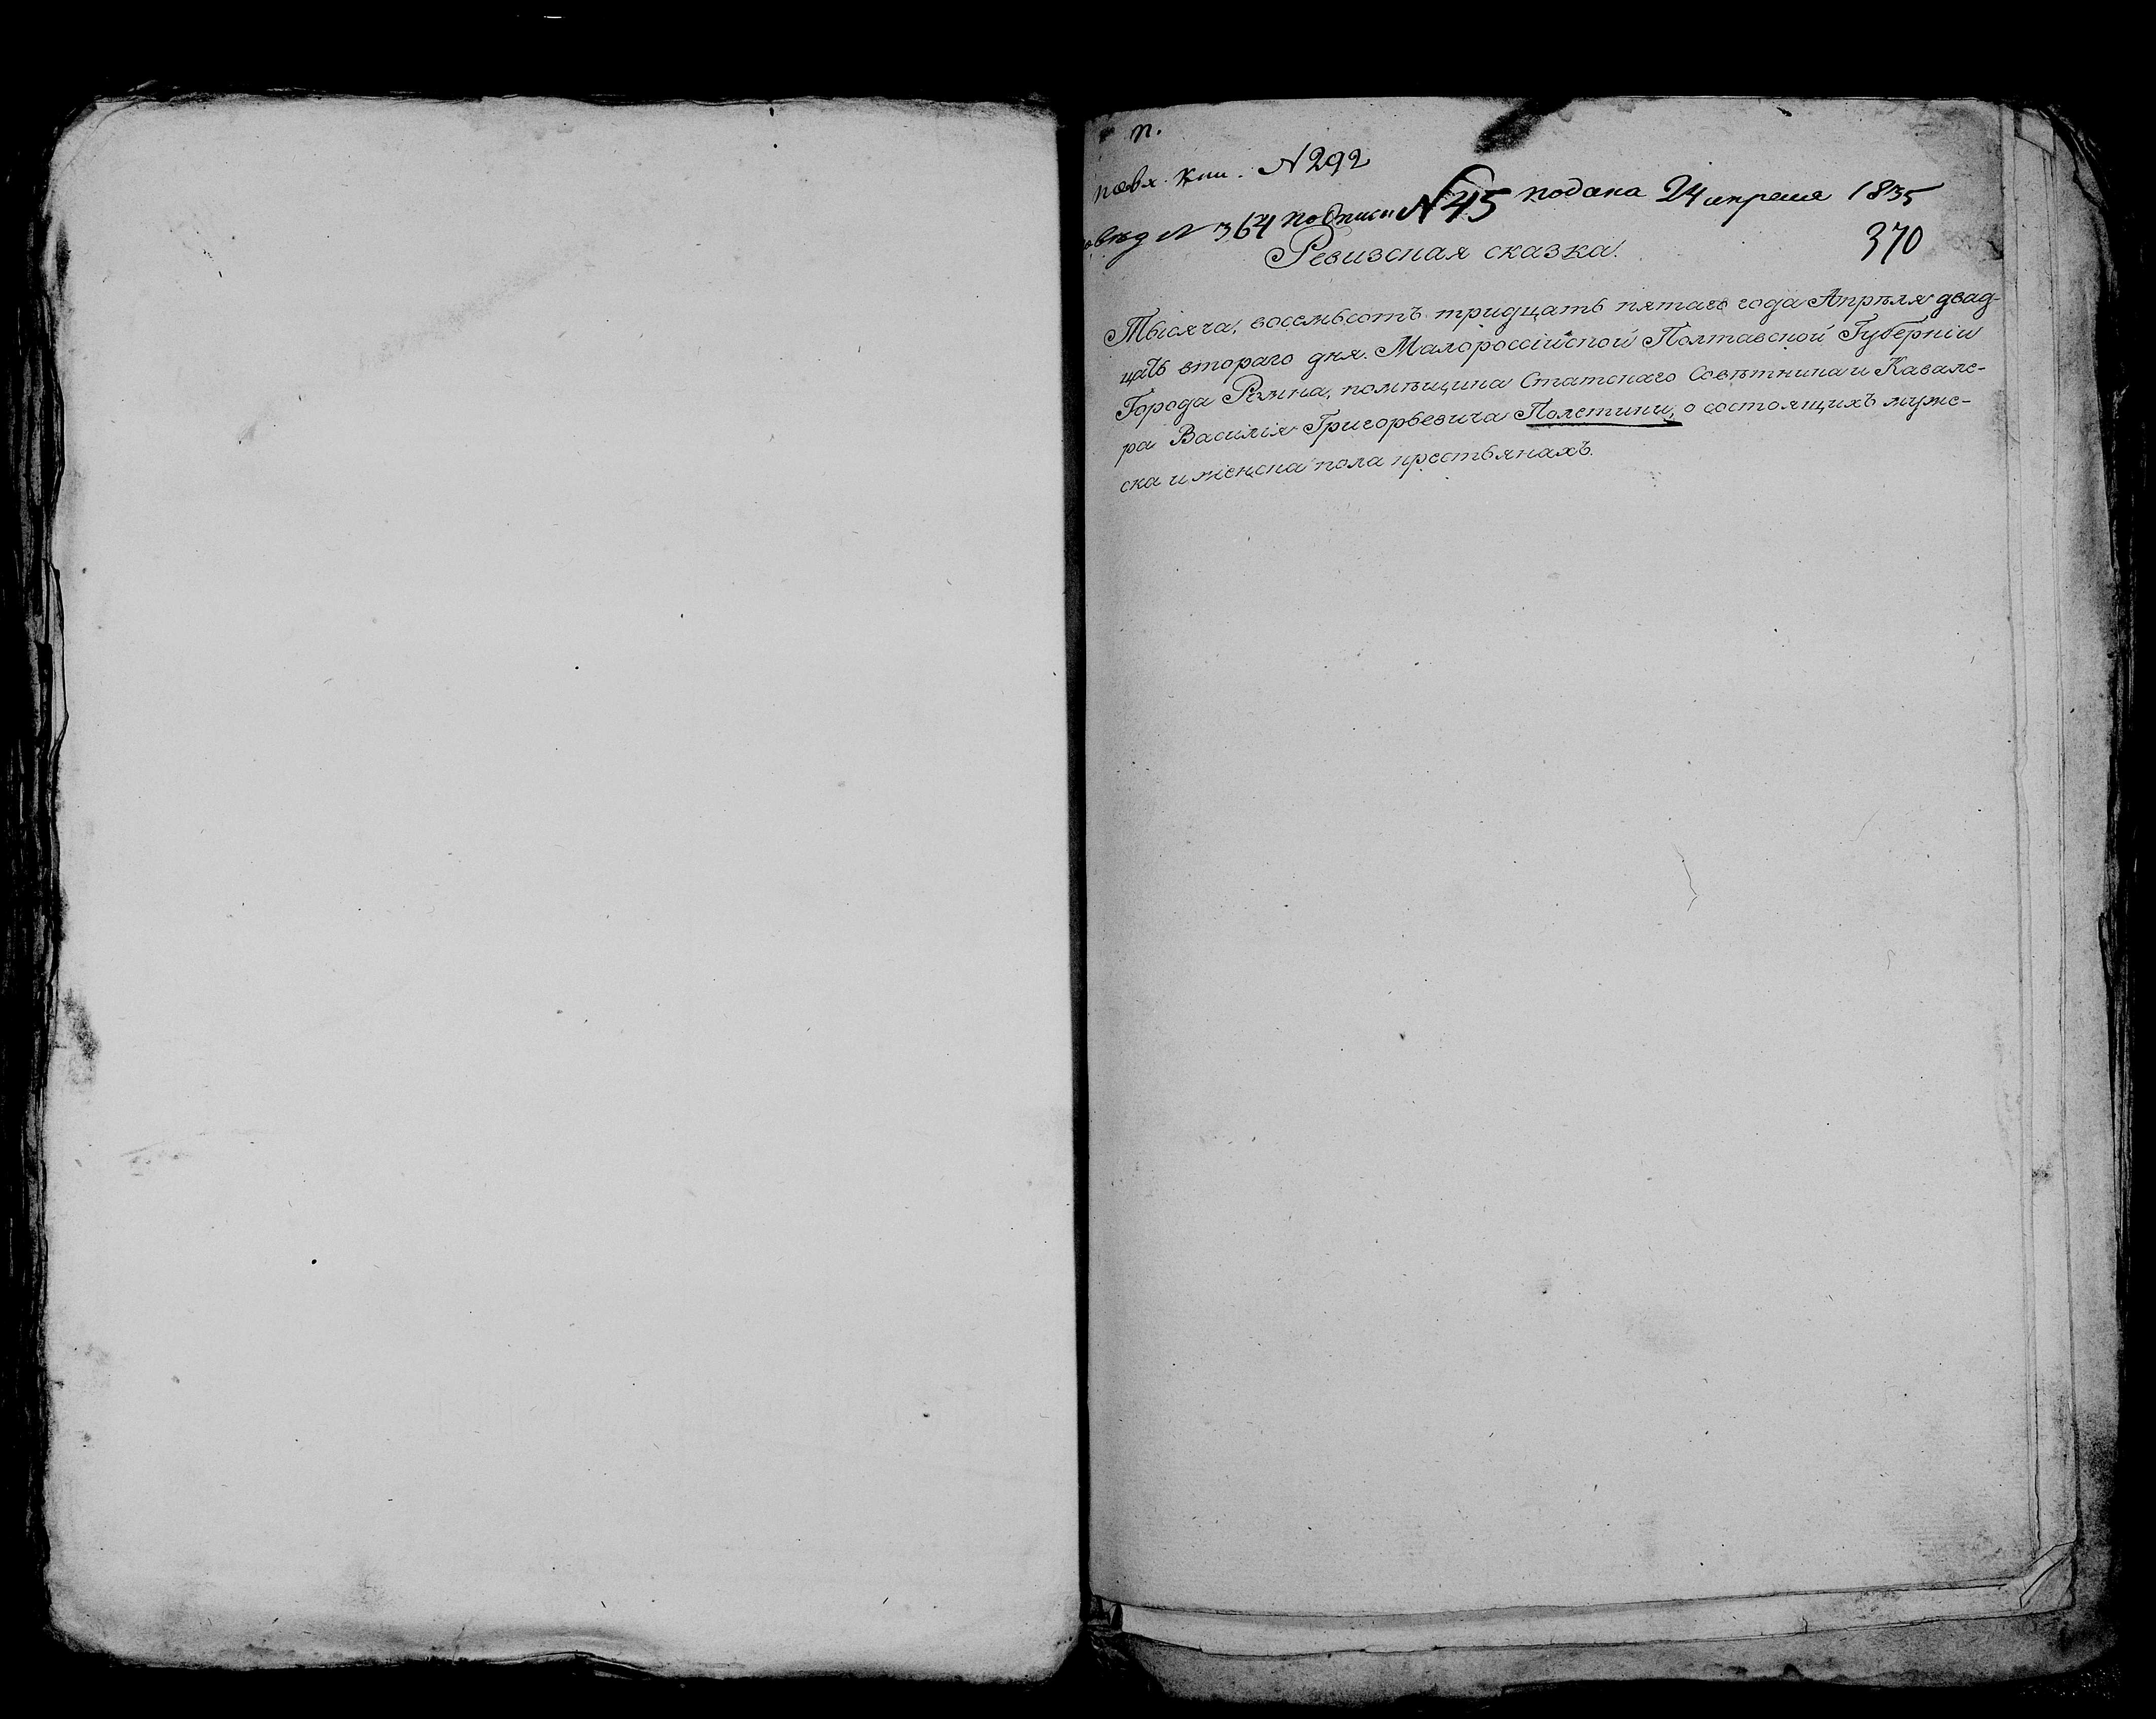 п.
N 292
N 364 по описи N 45 подана 24 апреля 1835
370
Ревизская сказка.
Тысяча, восемьсотъ тридцать пятаго года Апрѣля двад-
цать втораго дня. Малороссійской Полтавской Губерніи
Города Ромна, помѣщика Статскаго Совѣтника и Кавале-
ра Василія Григорьевича Полетики, о состоящихъ муже-
ска и женска пола крестьянахъ.